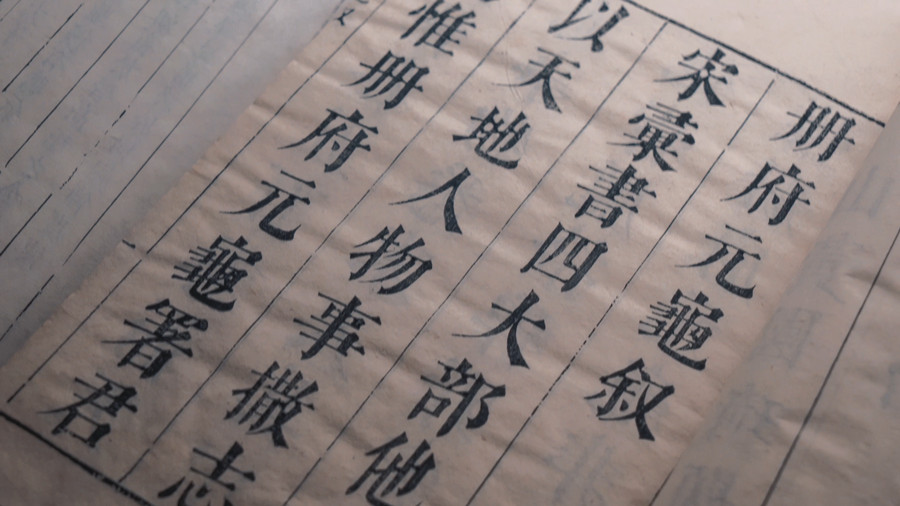 册府元龜叙
宋彚書四大部他
以天地人物事撒志
惟册府元龜署君